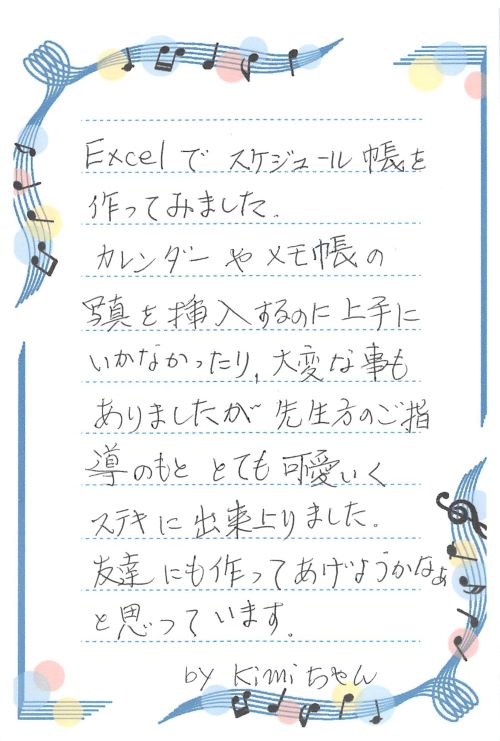 Excelで スケジュール 帳を
作ってみました.
カレンダー や メモ帳 の
写真を挿入するのに上手に
いかなかったり, 大変な事も
ありましたが 先生方のご指
導のもと とても 可愛いく
ステキに 出来上りました.
友達にも作ってあげようかなぁ
と思っています.
by Kimiちゃん